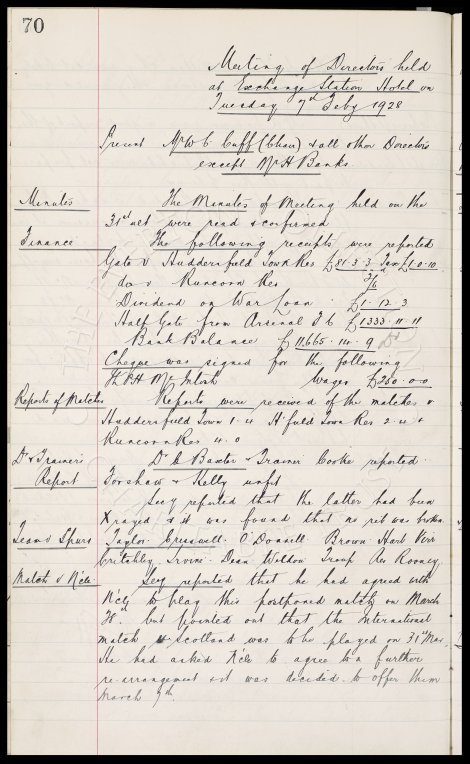 70
Meeting of Directors held
at Exchange Station Hotel on
Tuesday 7th Feby 1928
Present Mr W C Cuff (Chair) & all other Directors
except Mr H Banks.
Minutes
The Minutes of Meeting held on the
31st ult were read & confirmed
Finance
The following receipts were reported
Gate v Huddersfield Town Res £81.3.3 Tax £1.0.10
do v Runcorn Res 3/6
Dividend on War Loan £1.12.3
Half Gate from Arsenal F C £1333.11.11
Bank Balance £11,665.14.9
Cheque was signed for the following
Th. P.H. McIntosh Wages £250.0.0
Reports of Matches
Reports were received of the matches v
Huddersfield Town 1.4 H'field Town Res 2.4 &
Runcorn Res 4.0
Dr & Trainer's
Report
Dr C Baxter & Trainer Cooke reported
Forshaw & Kelly unfit
Secy reported that the latter had been
Xrayed & it was found that no rib was broken.
Team v Spurs
Taylor. Cresswell. O'Donnell Brown Hart Virr
Critchley Irvine. Dean Weldon Troup Res Rooney.
Match v N'cle
Secy reported that he had agreed with
N'cle to play this postponed match on March
31st but pointed out that the International
match v Scotland was to be played on 31st Mar.
He had asked N'cle to agree to a further
re-arrangement & it was decided to offer them
March 7th.